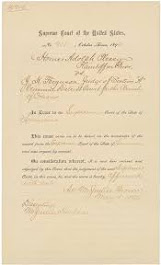 Supreme Court of the United States,
No. 210, October Term, 1895
Homer Adolph Plessy
Plaintiff in Error,
vs.
J. H. Ferguson, Judge of Section "A"
Criminal District Court for the Parish
of Orleans
In Error to the Supreme Court of the State of
Louisiana
This cause came on to be heard on the transcript of the
record from the Supreme Court of the State of Louisiana
and was argued by counsel.
On consideration whereof, It is now here ordered
and adjudged by this Court that the judgment of the said Supreme
Court, in this cause, be, and the same is hereby, affirmed
with costs.